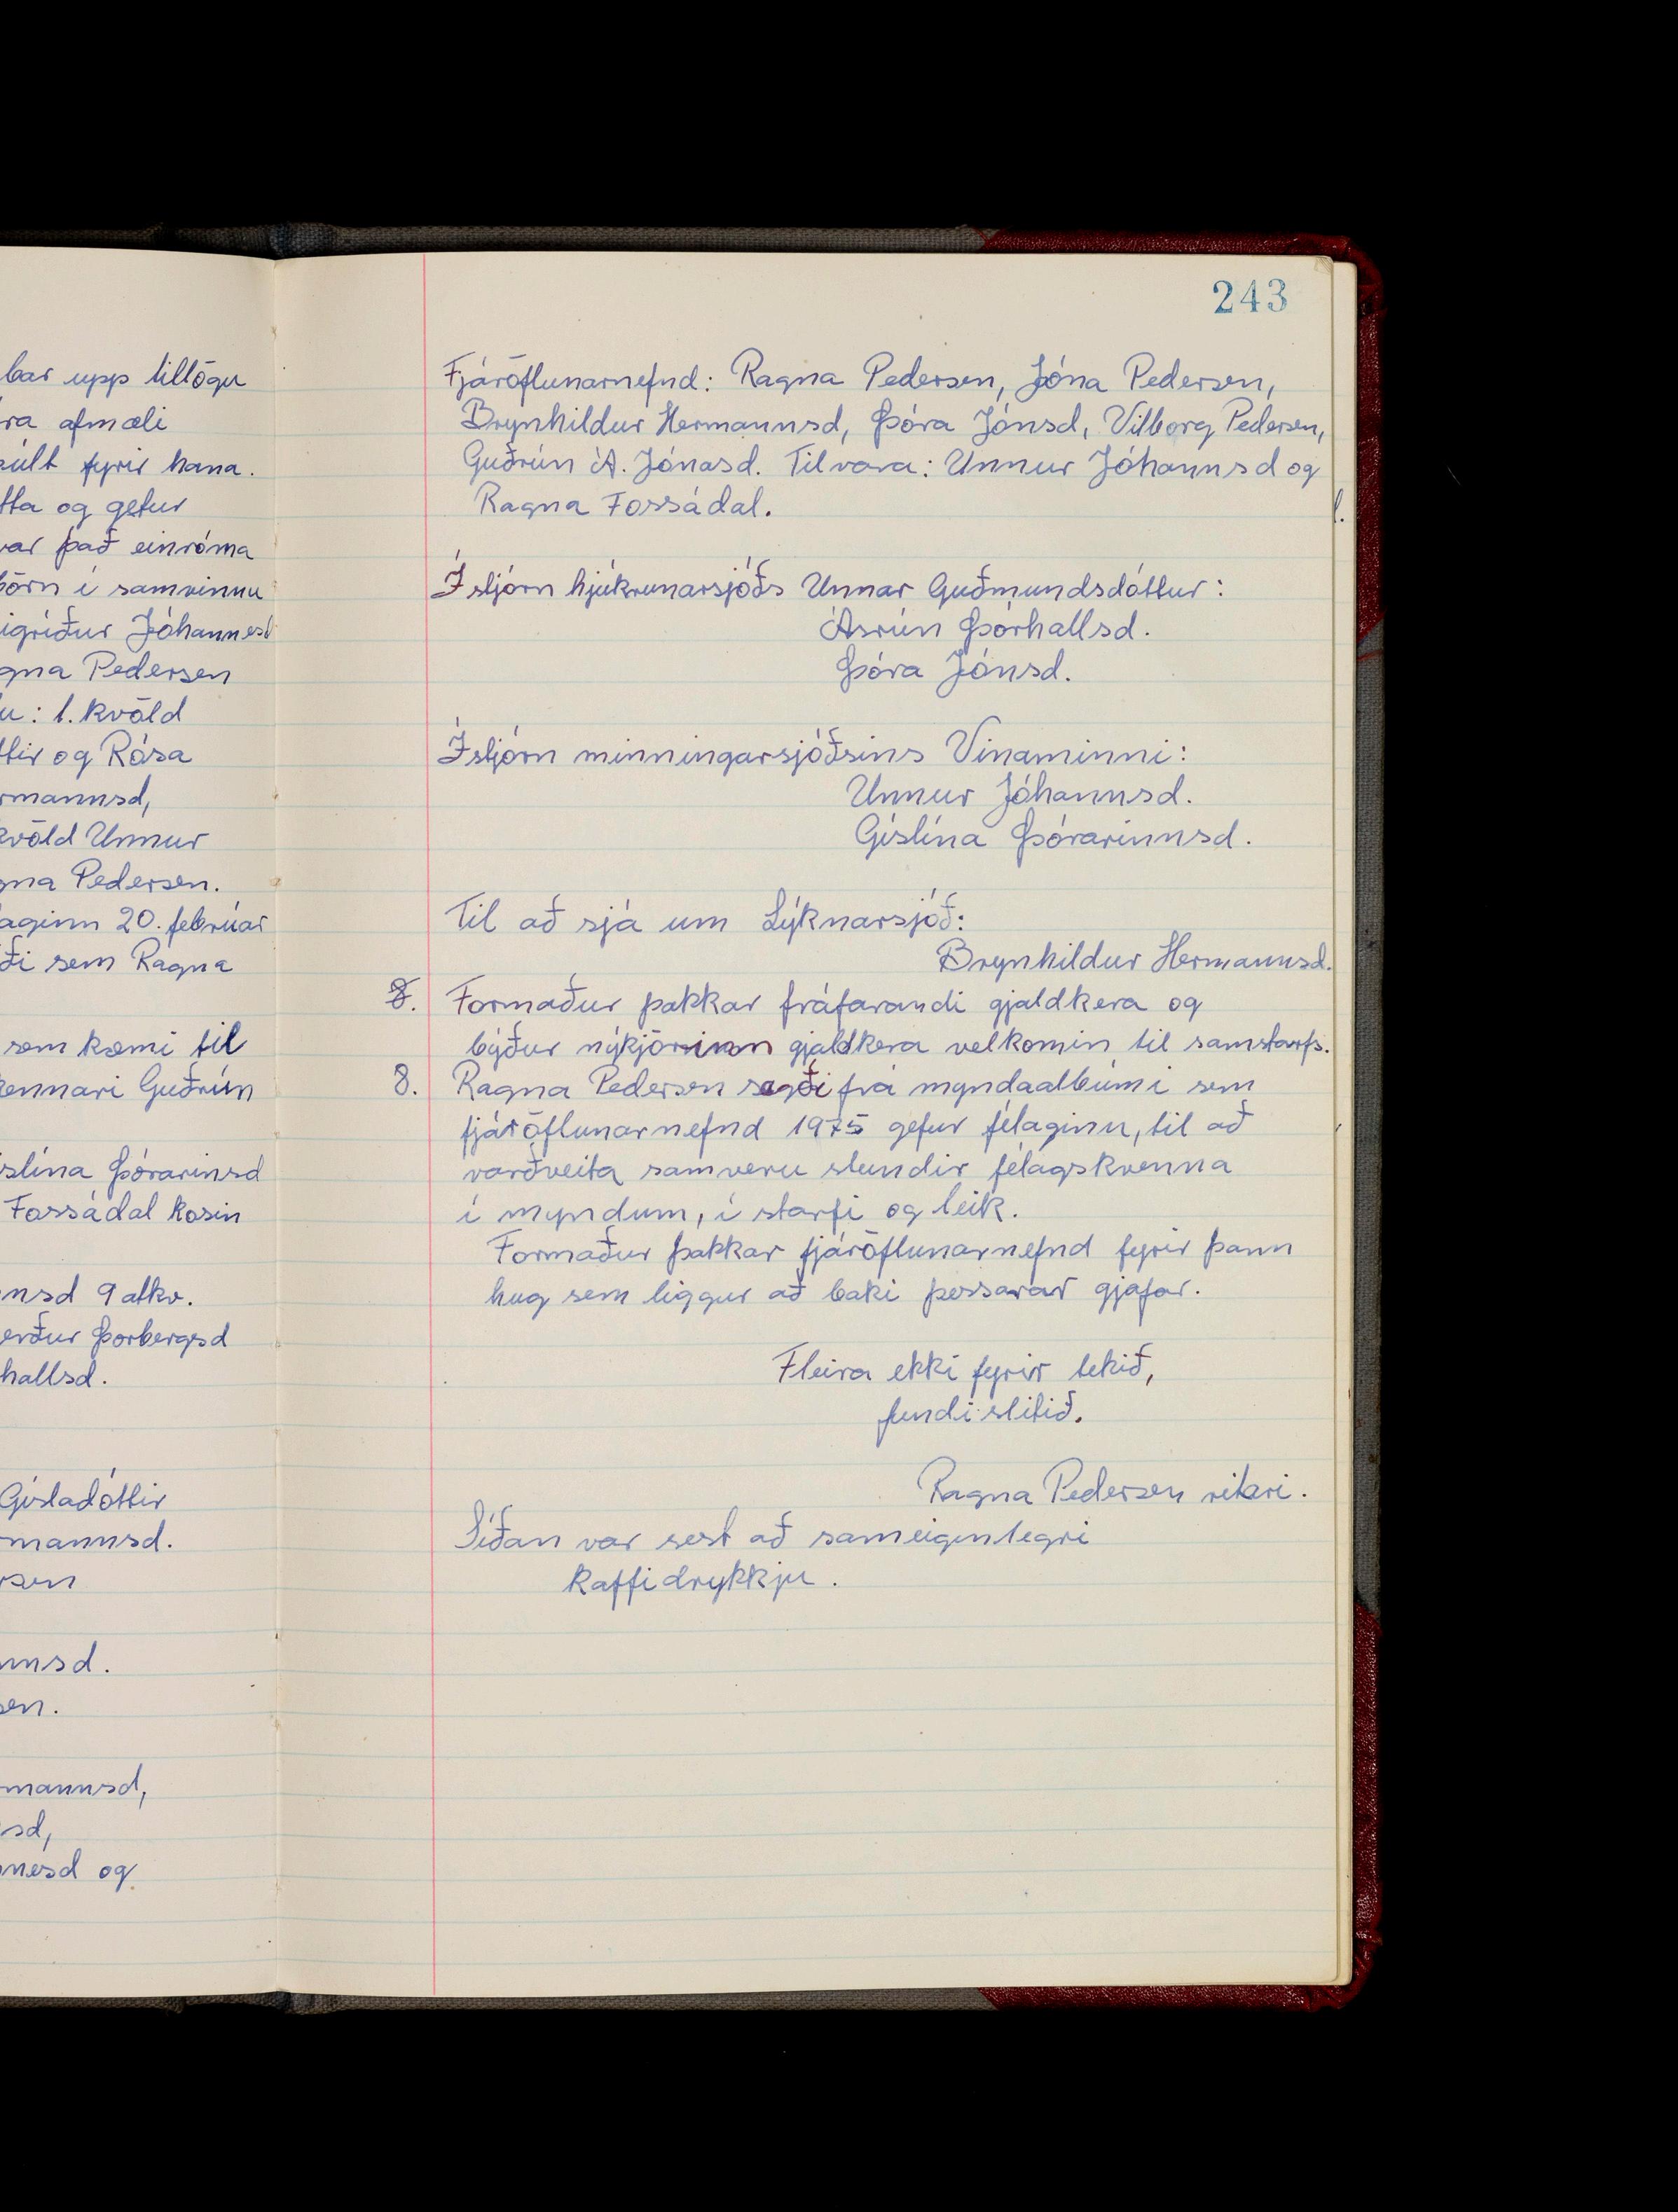 bar upp tillögu
ra afmæli
fyrir hana.
og gefur
var það einróma
börn í samvinnu
igríður Jóhannesd
gna Pedersen
u: 1. kvöld
ttir og Rósa
rmannsd,
kvöld Unnur
gna Pedersen.
aginn 20. febrúar
ði sem Ragna
sem kæmi til
kennari Guðrún
slína Þórarinsd
Fossádal kosin
nsd 9 atkv.
erður Þorbergsd
hallsd.
Gísladóttir
mannsd.
sen
nnsd.
sen.
mannsd,
sd,
nesd og
243
Fjáröflunarnefnd: Ragna Pedersen, Jóna Pedersen,
Brynhildur Hermannsd, Þóra Jónsd, Vilborg Pedersen,
Guðrún Á. Jónasd. Til vara: Unnur Jóhannsd og
Ragna Fossádal.
Í stjórn hjúkrunarsjóðs Unnar Guðmundsdóttur:
Ásrún Þórhallsd.
Þóra Jónsd.
Í stjórn minningarsjóðsins Vinaminni:
Unnur Jóhannsd.
Gíslína Þórarinnsd.
Til að sjá um Lýknarsjóð:
Brynhildur Hermannsd.
8. Formaður þakkar fráfarandi gjaldkera og
býður nýkjörinn gjaldkera velkomin til samstarfs.
8. Ragna Pedersen sagði frá myndaalbúmi sem
fjáröflunarnefnd 1975 gefur félaginu, til að
varðveita samveru stundir félagskvenna
í myndum, í starfi og leik.
Formaður þakkar fjáröflunarnefnd fyrir þann
hug sem liggur að baki þessarar gjafar.
Fleira ekki fyrir tekið,
fundi slitið.
Ragna Pedersen ritari.
Síðan var sest að sameigenlegri
kaffidrykkju.